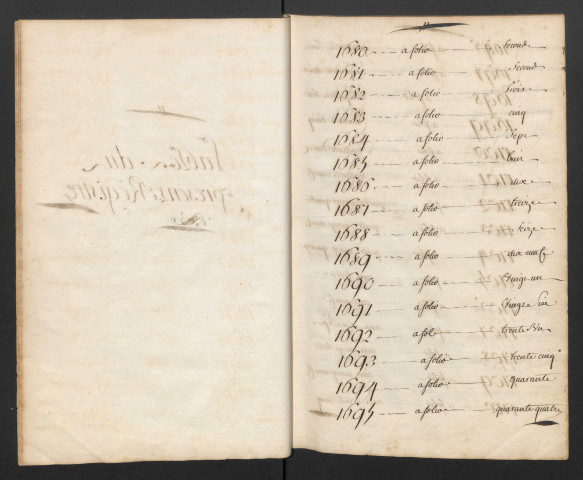 1680 a folio second
1681 a folio second
1682 a folio trois
1683 a folio cinq
1684 a folio sept
1685 a folio huit
1686 a folio dix
1687 a folio treize
1688 a folio seize
1689 a folio dix neuf
1690 a folio vingt un
1691 a folio vingt six
1692 a folio trente
1693 a folio trente cinq
1694 a folio quarante
1695 a folio quarante quatre